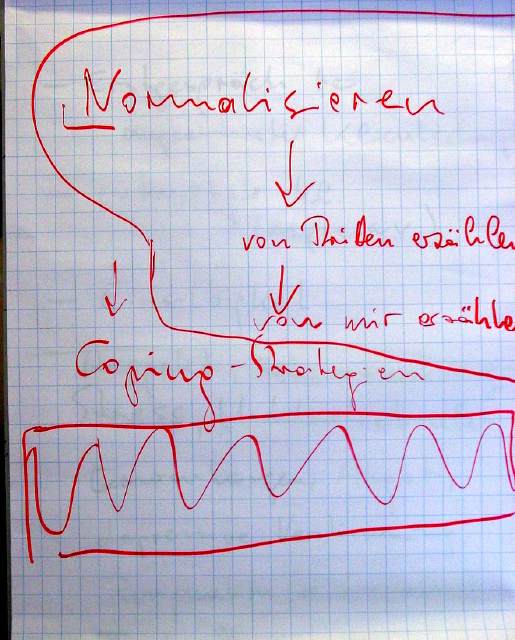 Normalisieren
von Dritten erzählen
von mir erzähle
Coping-Strategien